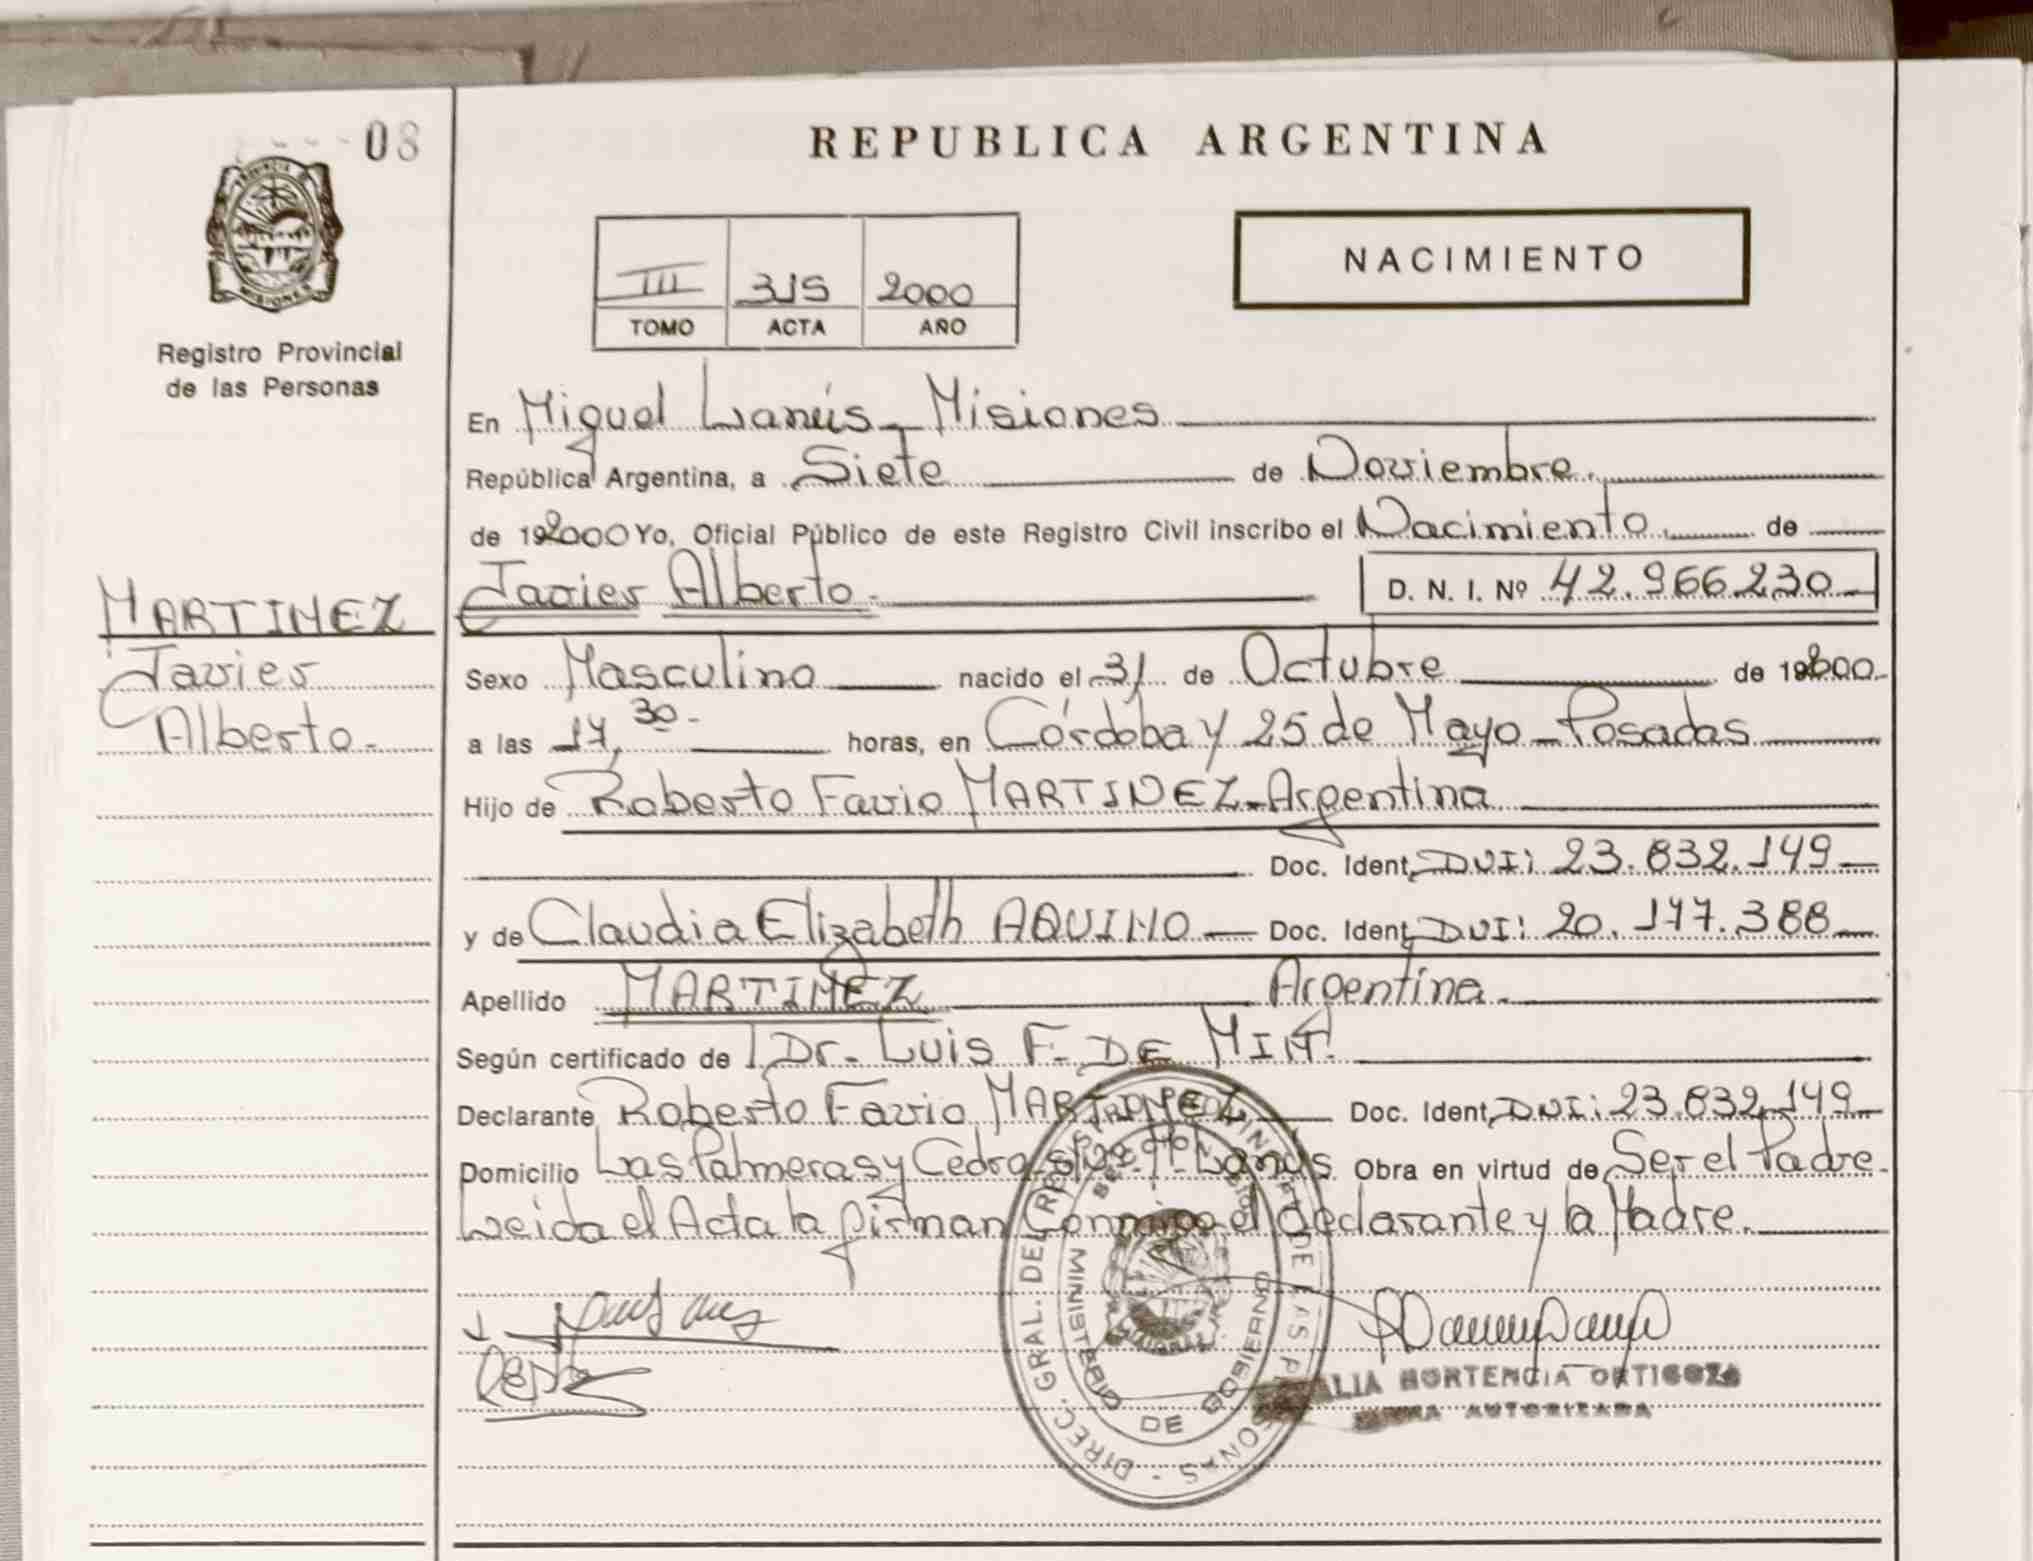 08
REPUBLICA ARGENTINA
PROVINCIA DE
MISIONES
Registro Provincial
de las Personas
III 315 2000
TOMO ACTA AÑO
NACIMIENTO
En Miguel Lanús - Misiones
República Argentina, a Siete de Noviembre.
de 192000 Yo, Oficial Público de este Registro Civil inscribo el Nacimiento de
Javier Alberto. D. N. I. Nº 42.966.230
MARTINEZ
Javier
Alberto.-
Sexo Masculino nacido el 31 de Octubre de 192000.
a las 17,30.- horas, en Córdoba y 25 de Mayo - Posadas
Hijo de Roberto Favio MARTINEZ - Argentina
Doc. Ident. DNI: 23.832.149
y de Claudia Elizabeth AQUINO Doc. Ident. DNI: 20.177.388
Apellido MARTINEZ Argentina.
Según certificado de Dr. Luis F. DE
Declarante Roberto Favio MARTINEZ Doc. Ident. DNI: 23.832.149
Domicilio Las Palmeras y Cedro Lanús Obra en virtud de Ser el Padre.
Leida el Acta la firman Conmigo el declarante y la Madre.
HORTENCIA ORTIGOZA
AUTORIZADA
DIREC. GRAL. DEL REGISTRO PROVINCIAL DE LAS PERSONAS
MINISTERIO DE GOBIERNO